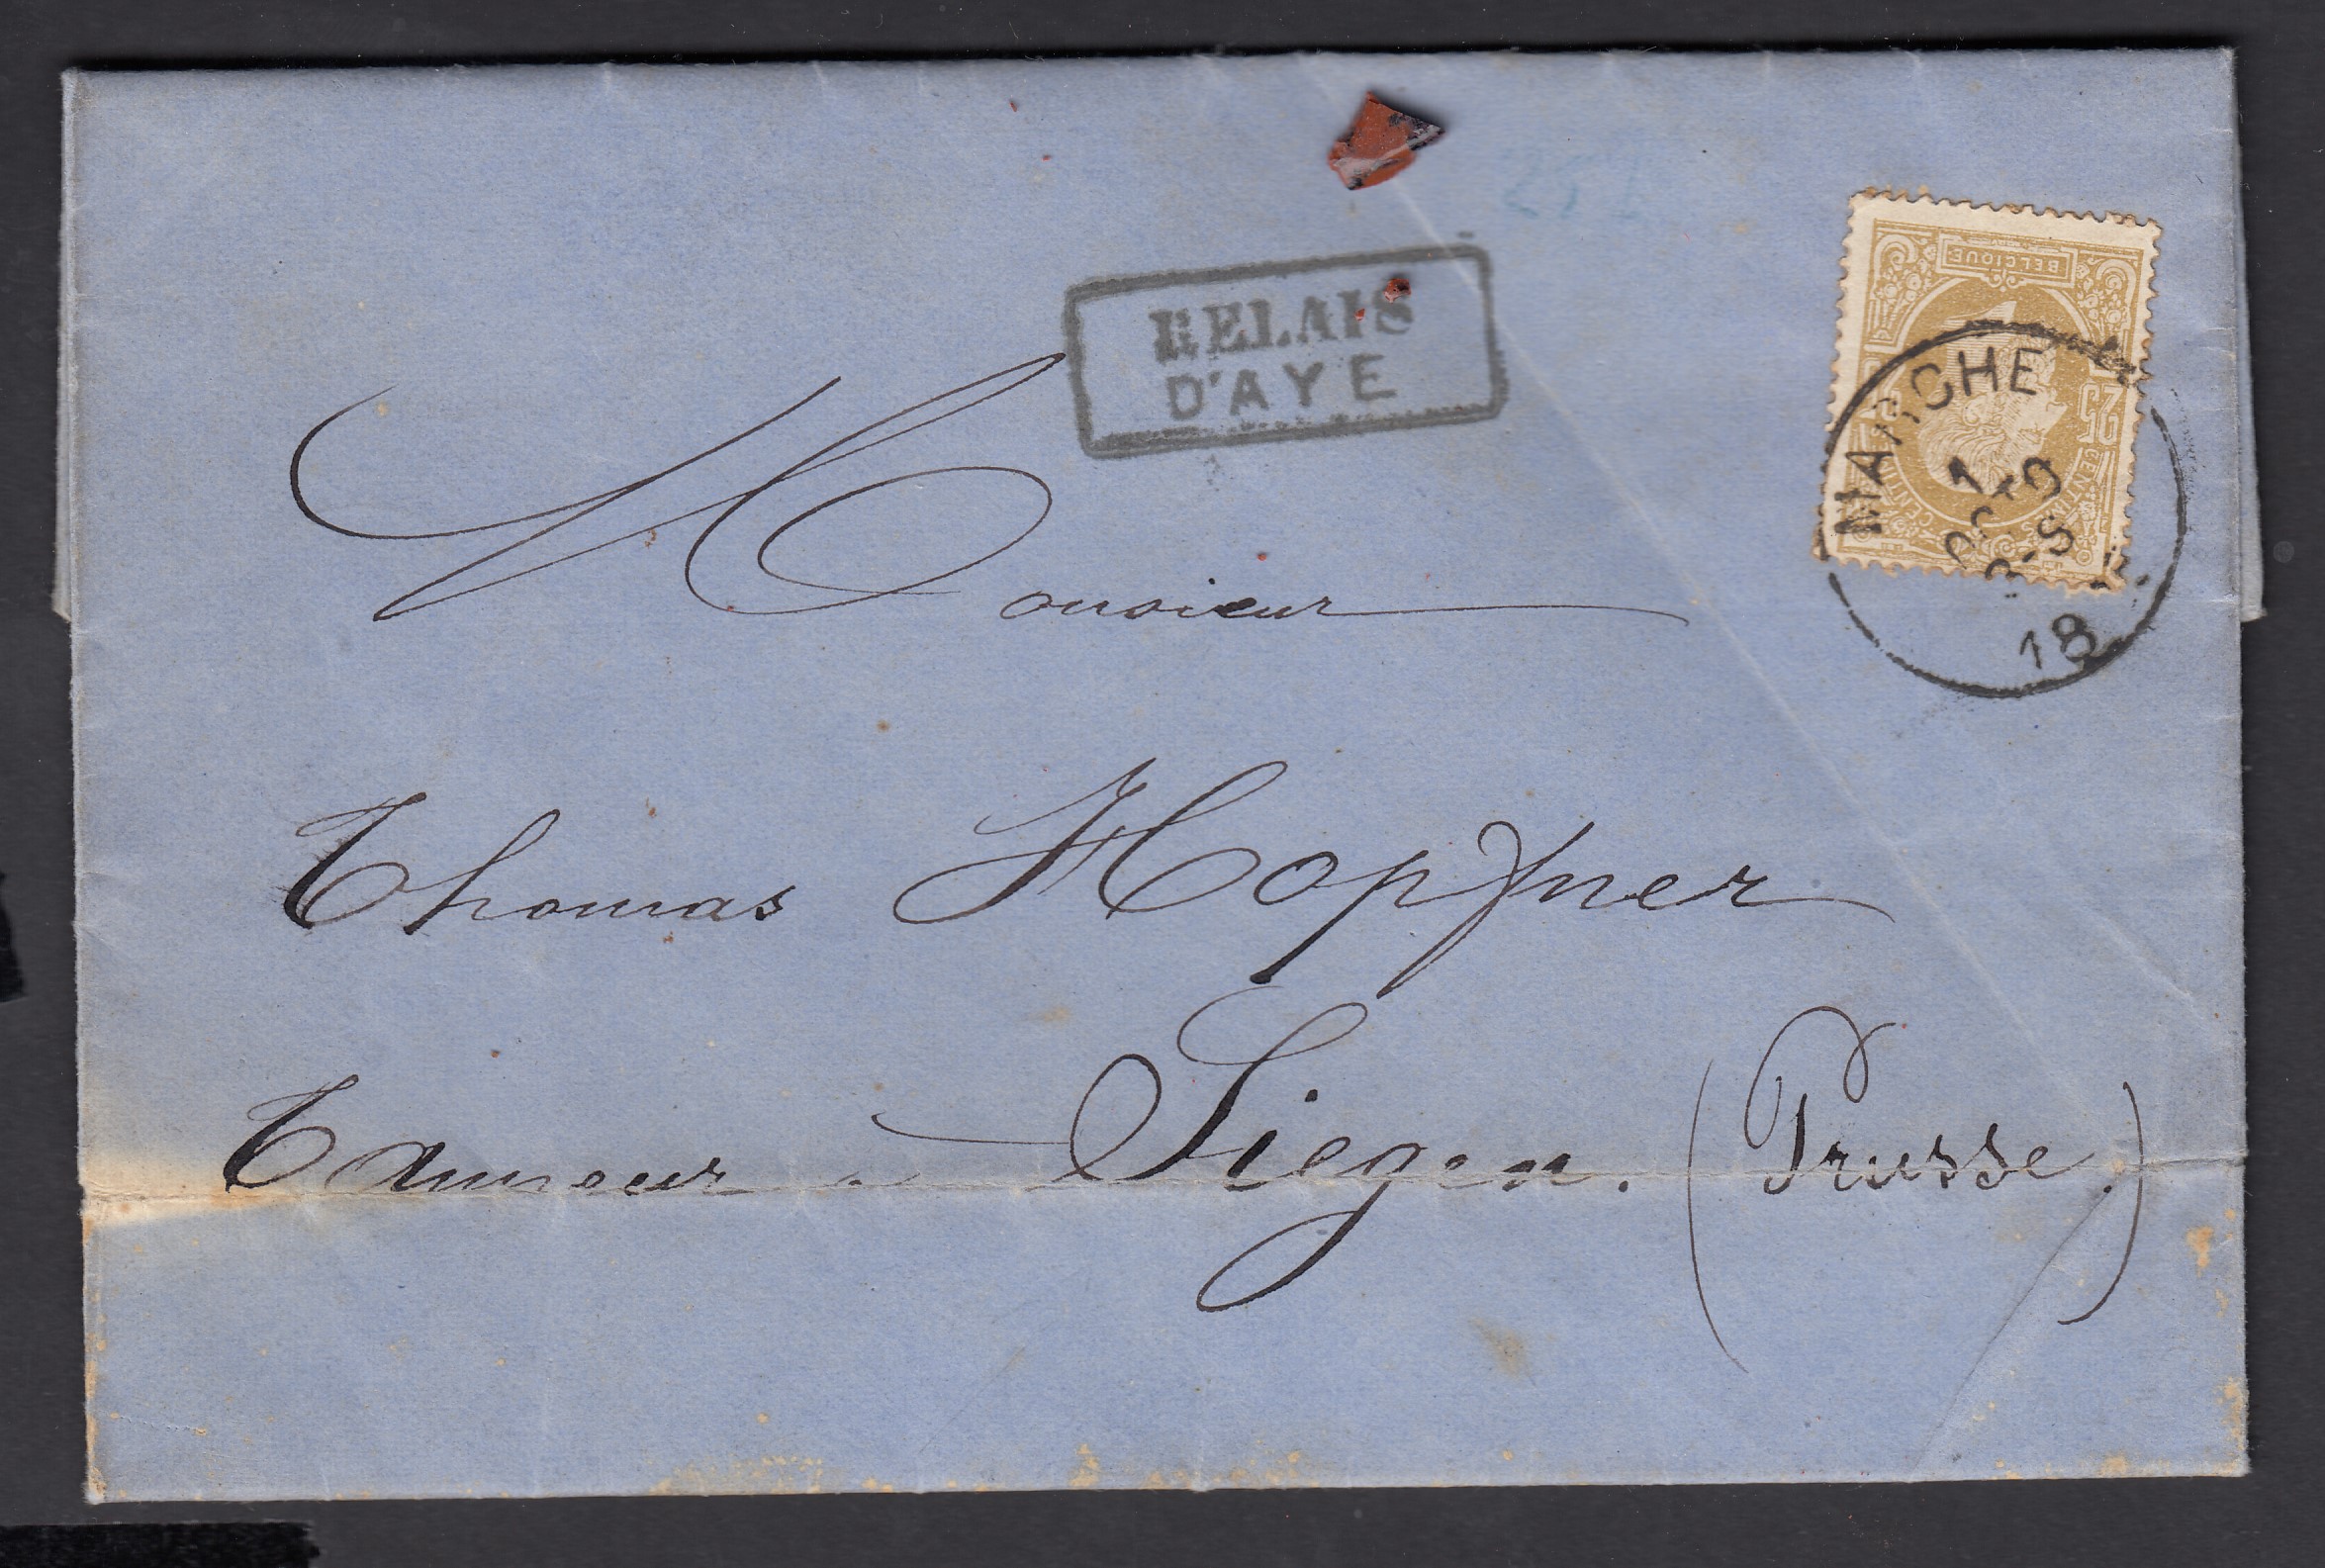 RELAIS
D'AYE
BELGIQUE
25 CENTIMES
MARCHE
18
Monsieur
Thomas Hopfner
Tanneur à Siegen. (Prusse.)